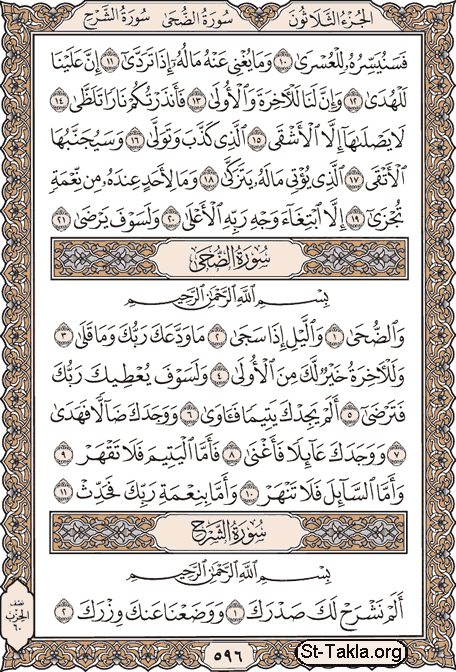 الجزء الثلاثون سورة الضحى سورة الشرح
فَسَنُيَسِّرُهُۥ لِلْعُسْرَىٰ ١٠ وَمَا يُغْنِى عَنْهُ مَالُهُۥٓ إِذَا تَرَدَّىٰٓ ١١ إِنَّ عَلَيْنَا
لَلْهُدَىٰ ١٢ وَإِنَّ لَنَا لَلْـَٔاخِرَةَ وَٱلْأُولَىٰ ١٣ فَأَنذَرْتُكُمْ نَارًا تَلَظَّىٰ ١٤
لَا يَصْلَىٰهَآ إِلَّا ٱلْأَشْقَى ١٥ ٱلَّذِى كَذَّبَ وَتَوَلَّىٰ ١٦ وَسَيُجَنَّبُهَا
ٱلْأَتْقَى ١٧ ٱلَّذِى يُؤْتِى مَالَهُۥ يَتَزَكَّىٰ ١٨ وَمَا لِأَحَدٍ عِندَهُۥ مِن نِّعْمَةٍ
تُجْزَىٰٓ ١٩ إِلَّا ٱبْتِغَآءَ وَجْهِ رَبِّهِ ٱلْأَعْلَىٰ ٢٠ وَلَسَوْفَ يَرْضَىٰ ٢١
سُورَةُ الضُّحَىٰ
بِسْمِ ٱللَّهِ ٱلرَّحْمَٰنِ ٱلرَّحِيمِ
وَٱلضُّحَىٰ ١ وَٱلَّيْلِ إِذَا سَجَىٰ ٢ مَا وَدَّعَكَ رَبُّكَ وَمَا قَلَىٰ ٣
وَلَلْـَٔاخِرَةُ خَيْرٌ لَّكَ مِنَ ٱلْأُولَىٰ ٤ وَلَسَوْفَ يُعْطِيكَ رَبُّكَ
فَتَرْضَىٰٓ ٥ أَلَمْ يَجِدْكَ يَتِيمًا فَـَٔاوَىٰ ٦ وَوَجَدَكَ ضَآلًّا فَهَدَىٰ
٧ وَوَجَدَكَ عَآئِلًا فَأَغْنَىٰ ٨ فَأَمَّا ٱلْيَتِيمَ فَلَا تَقْهَرْ ٩
وَأَمَّا ٱلسَّآئِلَ فَلَا تَنْهَرْ ١٠ وَأَمَّا بِنِعْمَةِ رَبِّكَ فَحَدِّثْ ١١
سُورَةُ الشَّرْحِ
بِسْمِ ٱللَّهِ ٱلرَّحْمَٰنِ ٱلرَّحِيمِ
أَلَمْ نَشْرَحْ لَكَ صَدْرَكَ ١ وَوَضَعْنَا عَنكَ وِزْرَكَ ٢
نصف
الحزب
٦٠
٥٩٦
St-Takla.org